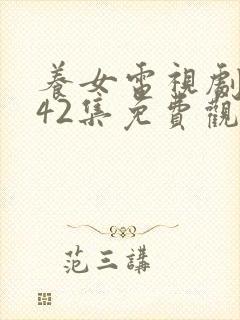 養女電視劇
42集免費觀
范三講